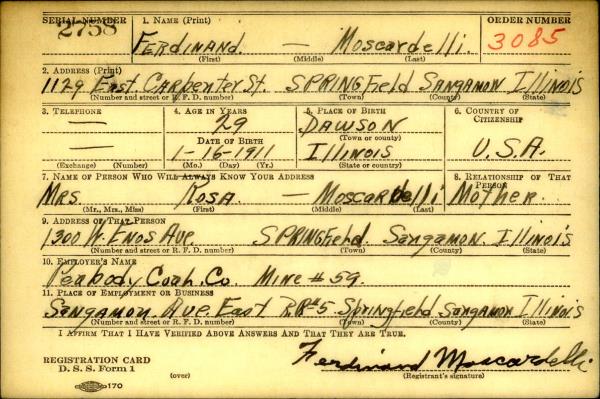 SERIAL NUMBER 1. NAME (Print) ORDER NUMBER
2758 FERDINAND. — Moscardelli. 3085
(First) (Middle) (Last)
2. ADDRESS (Print)
1129 East. Carpenter St. SPRINGfield Sangamon Illinois
(Number and street or R. F. D. number) (Town) (County) (State)
3. TELEPHONE 4. AGE IN YEARS 5. PLACE OF BIRTH 6. COUNTRY OF CITIZENSHIP
— 29 DAWSON
DATE OF BIRTH (Town or county)
— 1-16-1911 Illinois U.S.A.
(Exchange) (Number) (Mo.) (Day) (Yr.) (State or country)
7. NAME OF PERSON WHO WILL ALWAYS KNOW YOUR ADDRESS 8. RELATIONSHIP OF THAT PERSON
Mrs. Rosa — Moscardelli Mother.
(Mr., Mrs., Miss) (First) (Middle) (Last)
9. ADDRESS OF THAT PERSON
1300 W. Enos Ave. SPRINGfield. Sangamon. Illinois
(Number and street or R. F. D. number) (Town) (County) (State)
10. EMPLOYER'S NAME
Peabody Coal. Co. Mine #59.
11. PLACE OF EMPLOYMENT OR BUSINESS
Sangamon Ave East RR#5 Springfield Sangamon Illinois
(Number and street or R. F. D. number) (Town) (County) (State)
I AFFIRM THAT I HAVE VERIFIED ABOVE ANSWERS AND THAT THEY ARE TRUE.
REGISTRATION CARD
D. S. S. Form 1 (over) Ferdinand Moscardelli
170 (Registrant's signature)